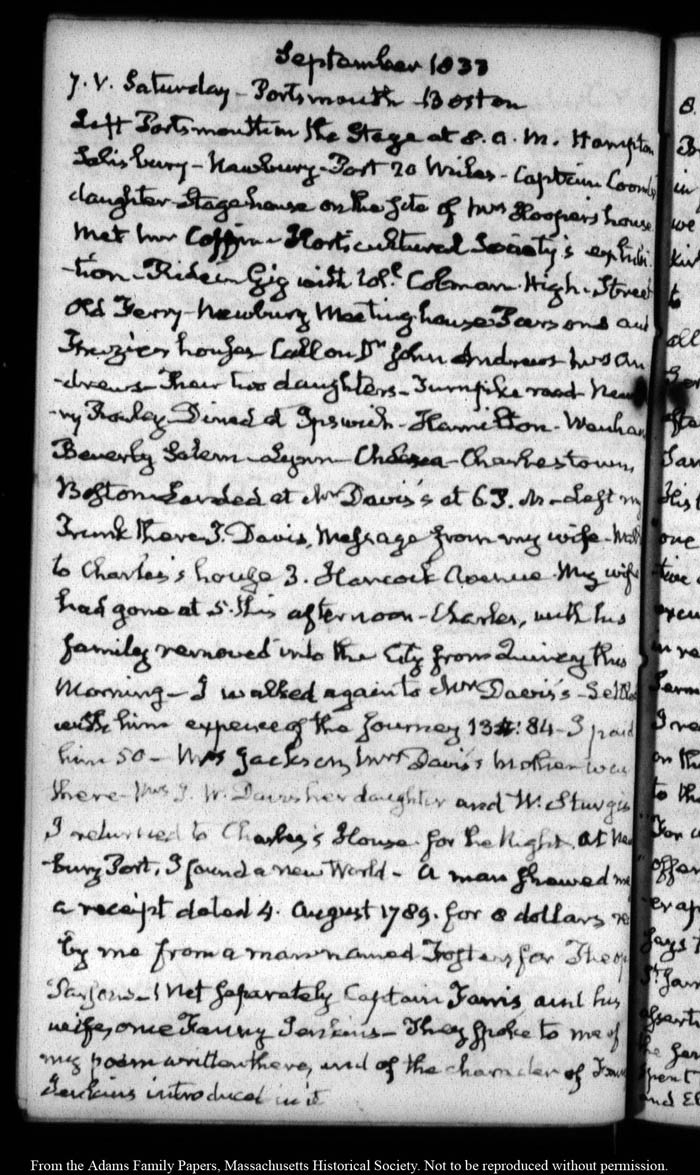 September 1833
7. V. Saturday - Portsmouth - Boston
Left Portsmouth in the Stage at 8. a. m. Hampton
Salisbury - Newbury-Port 20 Miles - Captain
daughter - Stage house on the site of Mrs Hooper's house
Met Mr Coffin - Horticultural Society's exhibi-
-tion - Ride in Gig with Colman - High-Street
Old Ferry - Newbury Meeting house Parsons and
Frazier houses - Call on Dr John Andrews - Mrs An
-drews - Their two daughters - Turnpike road - New
Rowley - Dined at Ipswich - Hamilton - Wenham
Beverly Salem - Lynn - Chelsea - Charlestown,
Boston - Landed at Mr Davis's at 6 P. M - Left my
Trunk there I. Davis, Message from my wife -
to Charles's house 3. Hancock Avenue. My wife
had gone at 5. this afternoon - Charles, with his
family removed into the City from Quincy this
Morning - I walked again to Mr Davis's - Settled
with him expence of the Journey 13 84 - I paid
him 50 - Mrs Jackson, Mrs Davis's Mother was
there - Mrs I. W. Davis her daughter and W. Sturgis
I returned to Charles's House for the Night. At New
bury Port, I found a new World - A man shewed me
a receipt dated 4. August 1789. for 8 dollars
by me from a man named for
I met separately Captain Farris and his
wife, once Fanny Jenkins - They spoke to me of
my poem written there, and of the character of
Jenkins introduced in it
8.
From the Adams Family Papers, Massachusetts Historical Society. Not to be reproduced without permission.